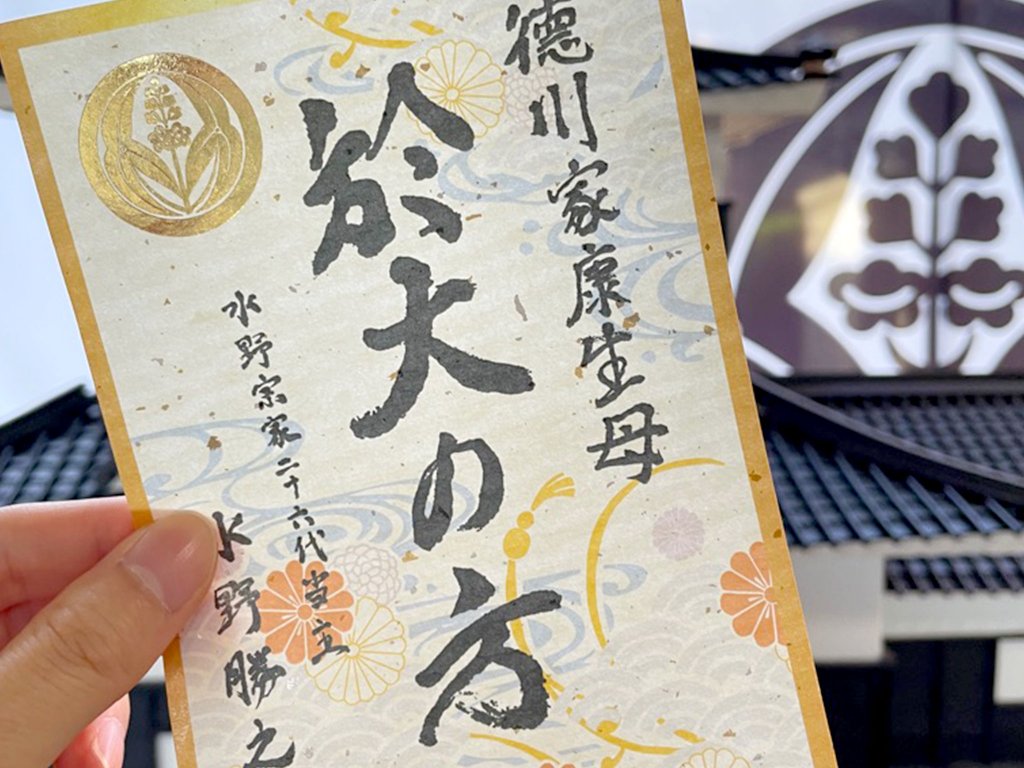 徳川家康生母
於大の方
水野宗家二十六代当主
水野勝之